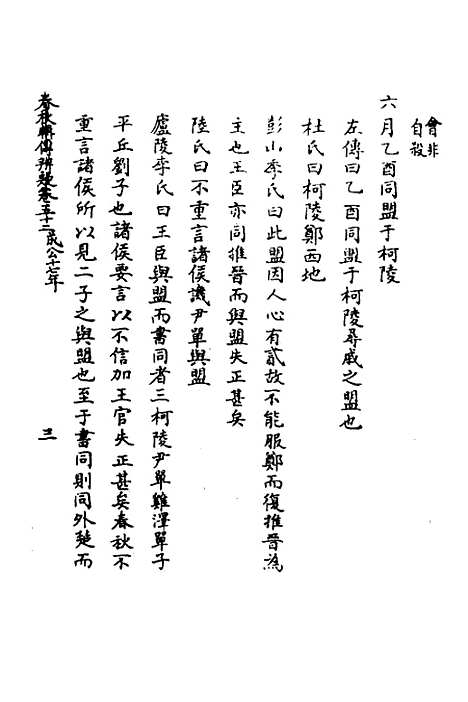 會非
自殺
六月乙酉同盟于柯陵
左傳曰乙酉同盟于柯陵尋戚之盟也
杜氏曰柯陵鄭西地
彭山季氏曰此盟因人心有貳故不能服鄭而復推晉為
主也王臣亦同推晉而與盟失正甚矣
陸氏曰不重言諸侯譏尹單與盟
廬陵李氏曰王臣與盟而書同者三柯陵尹單雞澤單子
平丘劉子也諸侯要言以不信加王官失正甚矣春秋不
重言諸侯所以見二子之與盟也至于書同則同外楚而
春秋輯傳辨疑卷五十二 成公十七年
三